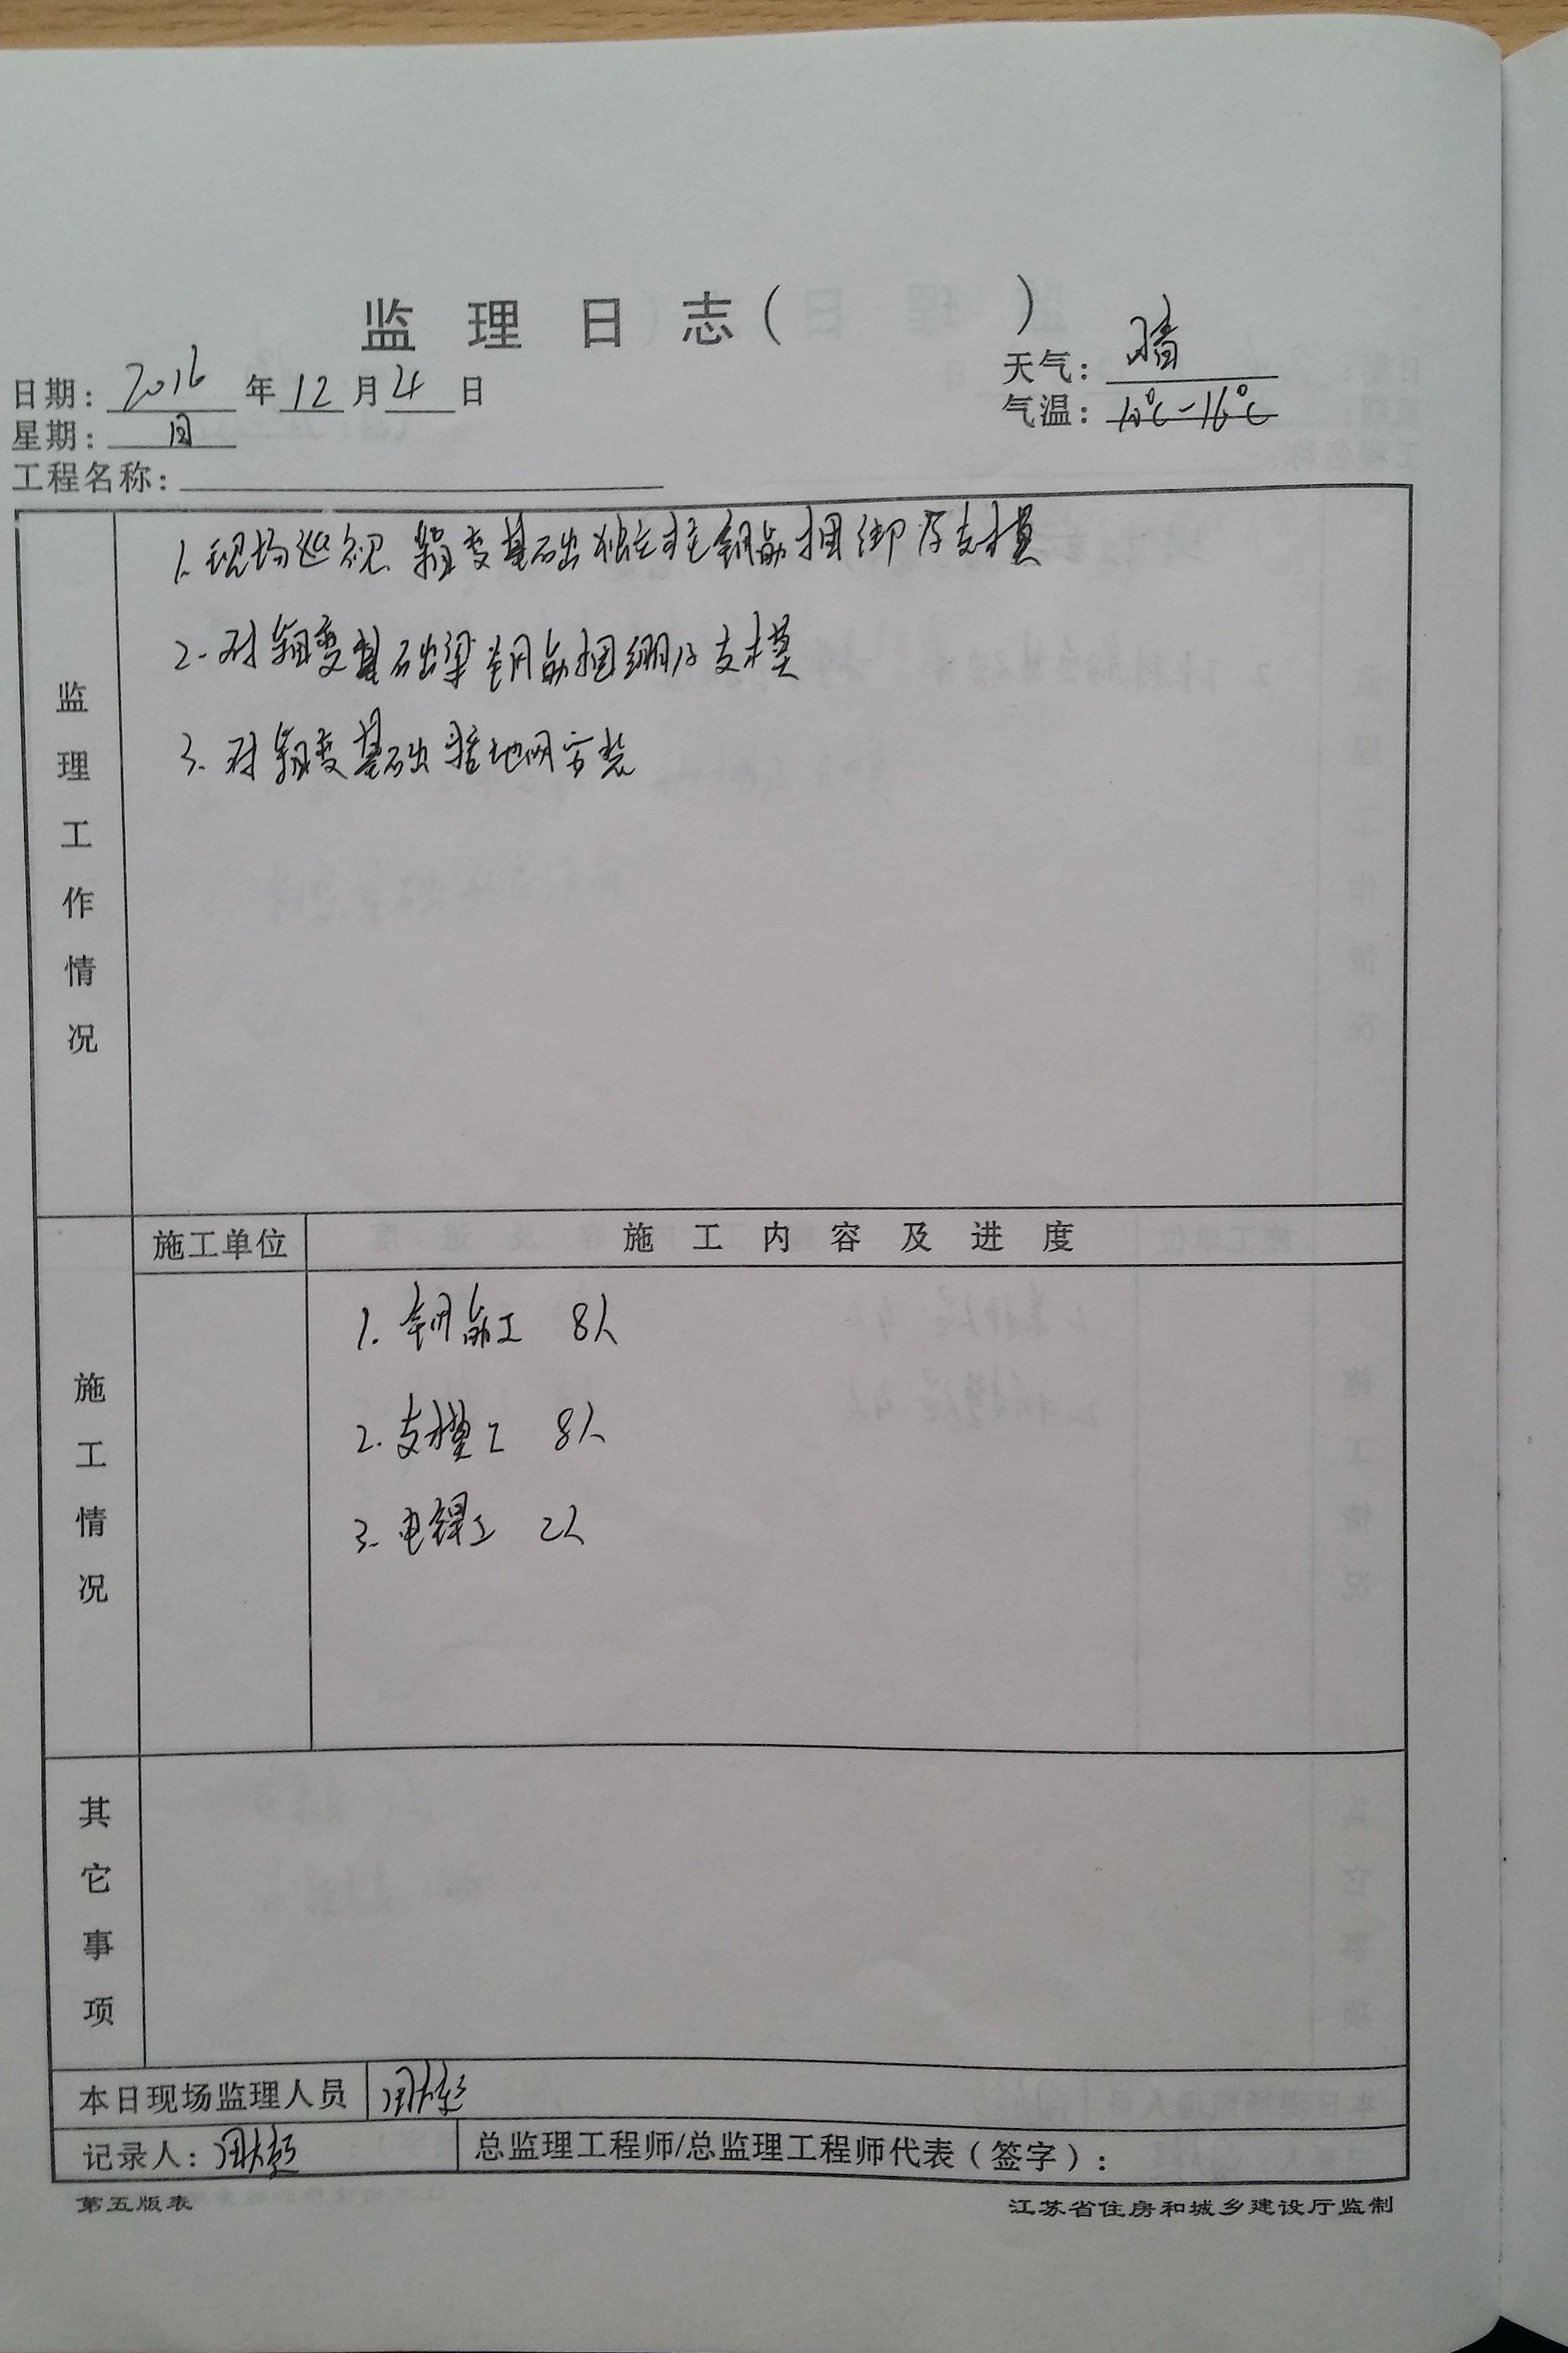 监理日志( )
天气: 晴
日期: 2016 年 12 月 4 日
气温: 10℃-16℃
星期: 日
工程名称:
监理工作情况
1.现场巡视 箱变基础独立柱钢筋捆绑及支模
2.对箱变基础梁钢筋捆绑及支模
3.对箱变基础接地网安装
施工单位 施工内容及进度
施工情况
1.钢筋工 8人
2.支模工 8人
3.电焊工 2人
其它事项
本日现场监理人员
记录人: 总监理工程师/总监理工程师代表(签字):
第五版表 江苏省住房和城乡建设厅监制